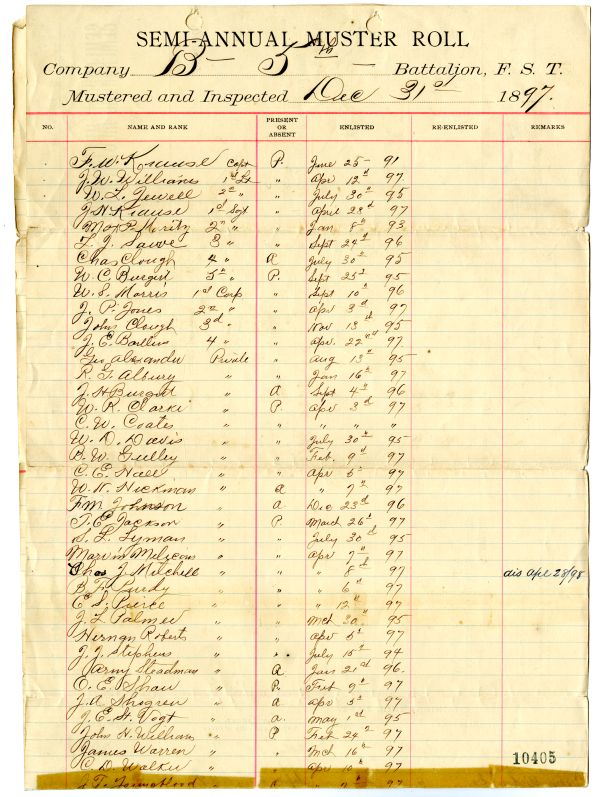 SEMI-ANNUAL MUSTER ROLL
Company B — 5th — Battalion, F. S. T.
Mustered and Inspected Dec 31st 1897.
NO. NAME AND RANK PRESENT OR ABSENT ENLISTED RE-ENLISTED REMARKS
F. W. Capt P. June 25 - 91
J. W. Williams 1st Lt " Apr 12th 97
W. L. Jewell 2nd " " July 30th 95
J H Krause 1st Sgt " April 23d 97
Max P Moritz 2nd " " Jan 8th 93
J. 3 " " Sept 24th 96
Chas Clough 4 " A July 30th 95
W. C. Burgin 5th " P. Sept 25th 95
W. S. Morris 1st Corp " Sept 10th 96
J. P. Jones 2nd " " Apr 3d 97
John Clough 3d " " Nov 13th 95
J. E. 4 " " Apr. 22nd 97
Geo Alexander Private " Aug 13th 95
R. F. Albury " " Jan 16th 97
J. H Burgin " A Sept 4th 96
W. R. Clarke " P. Apr 3d 97
C. W. Coates " " " " "
W. D. Davis " " July 30th 95
B. W. Gulley " " Feb. 9th 97
C. E. Hall " " Apr 5th 97
W. N. Hickman " A " 7th 97
F. M Johnson " A Dec 23d 96
T. E. Jackson " P March 26th 97
S. L. Lyman " " July 30th 95
Marvin " " Apr 7th 97
Chas J. Mitchell " " " 8th 97 dis Apl 28/98
B. F. Purdy " " " 6th 97
E S. Pierce " " " 12th 97
J. L Palmer " " Mch 30 95
Herman Roberts " " Apr 5th 97
J. J. Stephens " " July 15th 94
Steadman " A Jan 21st 96.
O. E. Shaw " P. Feb 9th 97
J. A. Shogren " A Apr 5th 97
J. E. St. Vogt " A. May 1st 95
John H. William " P Feb 24th 97
James Warren " " Mch 16th 97
C. D. Walker " " Apr 10th 97
J. T. " A " 97
10405